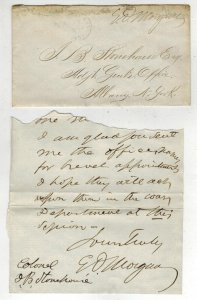 E D Morgan
J. B. Stonehouse Esq
Adjt Genls Office
Albany N. York
I am glad you sent
me the office
for naval appointments
I hope they will act
upon them in the
Department at this
Session
Yours Truly
E D Morgan
Colonel
J B Stonehouse